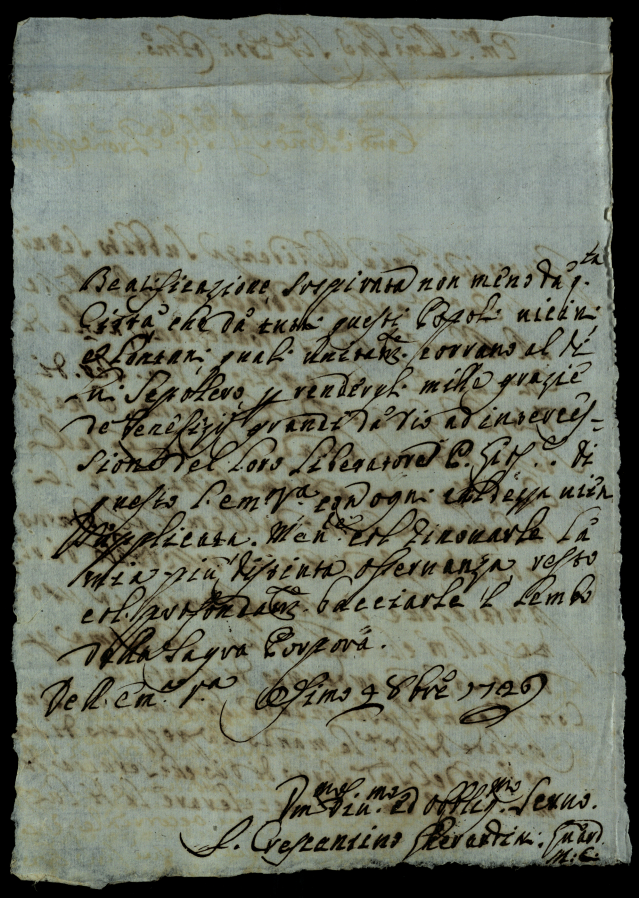 Beatificazione sospirata non meno da q.ta
Città che da tutti questi Popoli vicini
e lontani, quali unitam.te corrano al di
lui Sepolcro p rendergli mille grazie
de benefizij grandi da dio ad interces=
sione del loro liberatore P. Gios.e di
questo l'em.za v.ra con ogni caldezza vien
supplicata. Men.e col rinovarle la
mia più distinta osservanza resto
col profondam.te bacciarle il lembo
della Sagra Porpora.
Dell' Em.za V.ra Osimo 4 8bre 1726
Um.mo Div.mo ed obblig.mo Servo
F. Crespantino Gherardini Guard.
M. C.